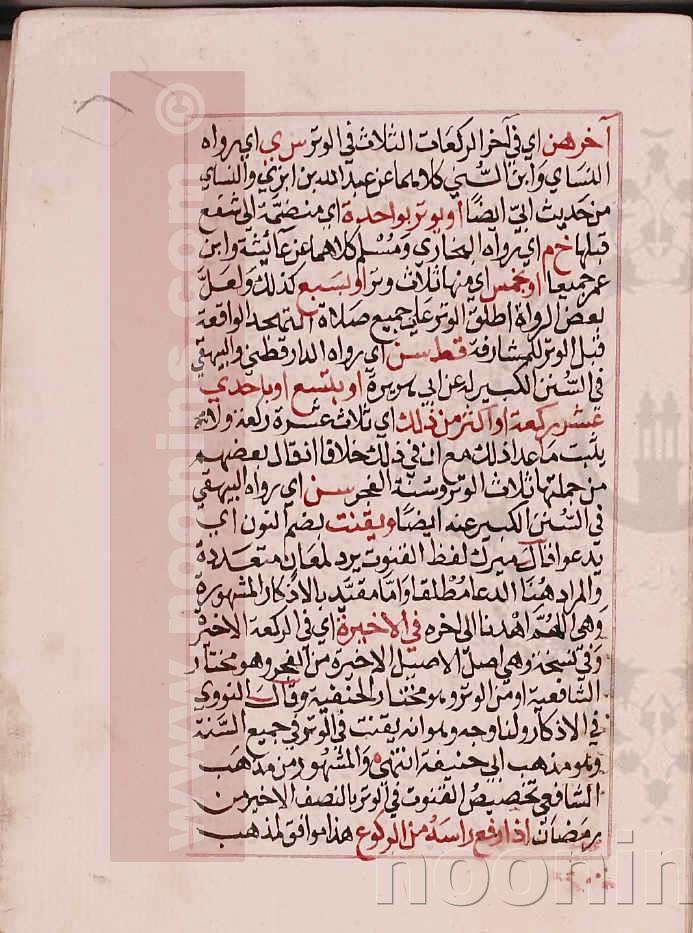 آخرهن اي في آخر الركعات الثلاث في الوتر س ي اي رواه
النساي وابن السني كلاهما عن عبد الله بن ابزي والنساي
من حديث ابي ايضا او يوتر بواحدة اي منضمة الي شفع
قبلها خ م اي رواه البخاري ومسلم كلاهما عن عائشة وابن
عمر جميعا او بخمس اي منها ثلاث وترا او بسبع كذلك ولعل
بعض الرواة اطلق الوتر علي جميع صلاة التهجد الواقعة
قبل الوتر للمشارفة قط سن اي رواه الدارقطني والبيهقي
في السنن الكبير له عن ابي هريرة او بتسع او باحدي
عشر ركعة او اكثر من ذلك اي ثلاث عشرة ركعة ولم
يثبت ما عدا ذلك مع ان في ذلك خلافا اذ قال بعضهم
من جملتها ثلاث الوتر وسنة الفجر سن اي رواه البيهقي
في السنن الكبير عنه ايضا ويقنت بضم النون اي
يدعو قال ميرك لفظ القنوت يرد لمعان متعددة
والمراد هنا الدعا مطلقا واما مقيد بالاذكار المشهورة
وهي اللهم اهدنا الي اخره في الاخيرة اي في الركعة الاخيرة
وفي نسخة وهي اصل الاصيل الاخيرة من الفجر وهو مختار
الشافعية او من الوتر وهو مختار الحنفية وقال النووي
في الاذكار ولنا وجه وهو انه يقنت في الوتر في جميع السنة
وهو مذهب ابي حنيفة انتهي والمشهور من مذهب
الشافعي تخصيص القنوت في الوتر بالنصف الاخير من
رمضان اذا رفع راسه من الركوع هذا موافق لمذهب
www.noonins.com ©
noonin